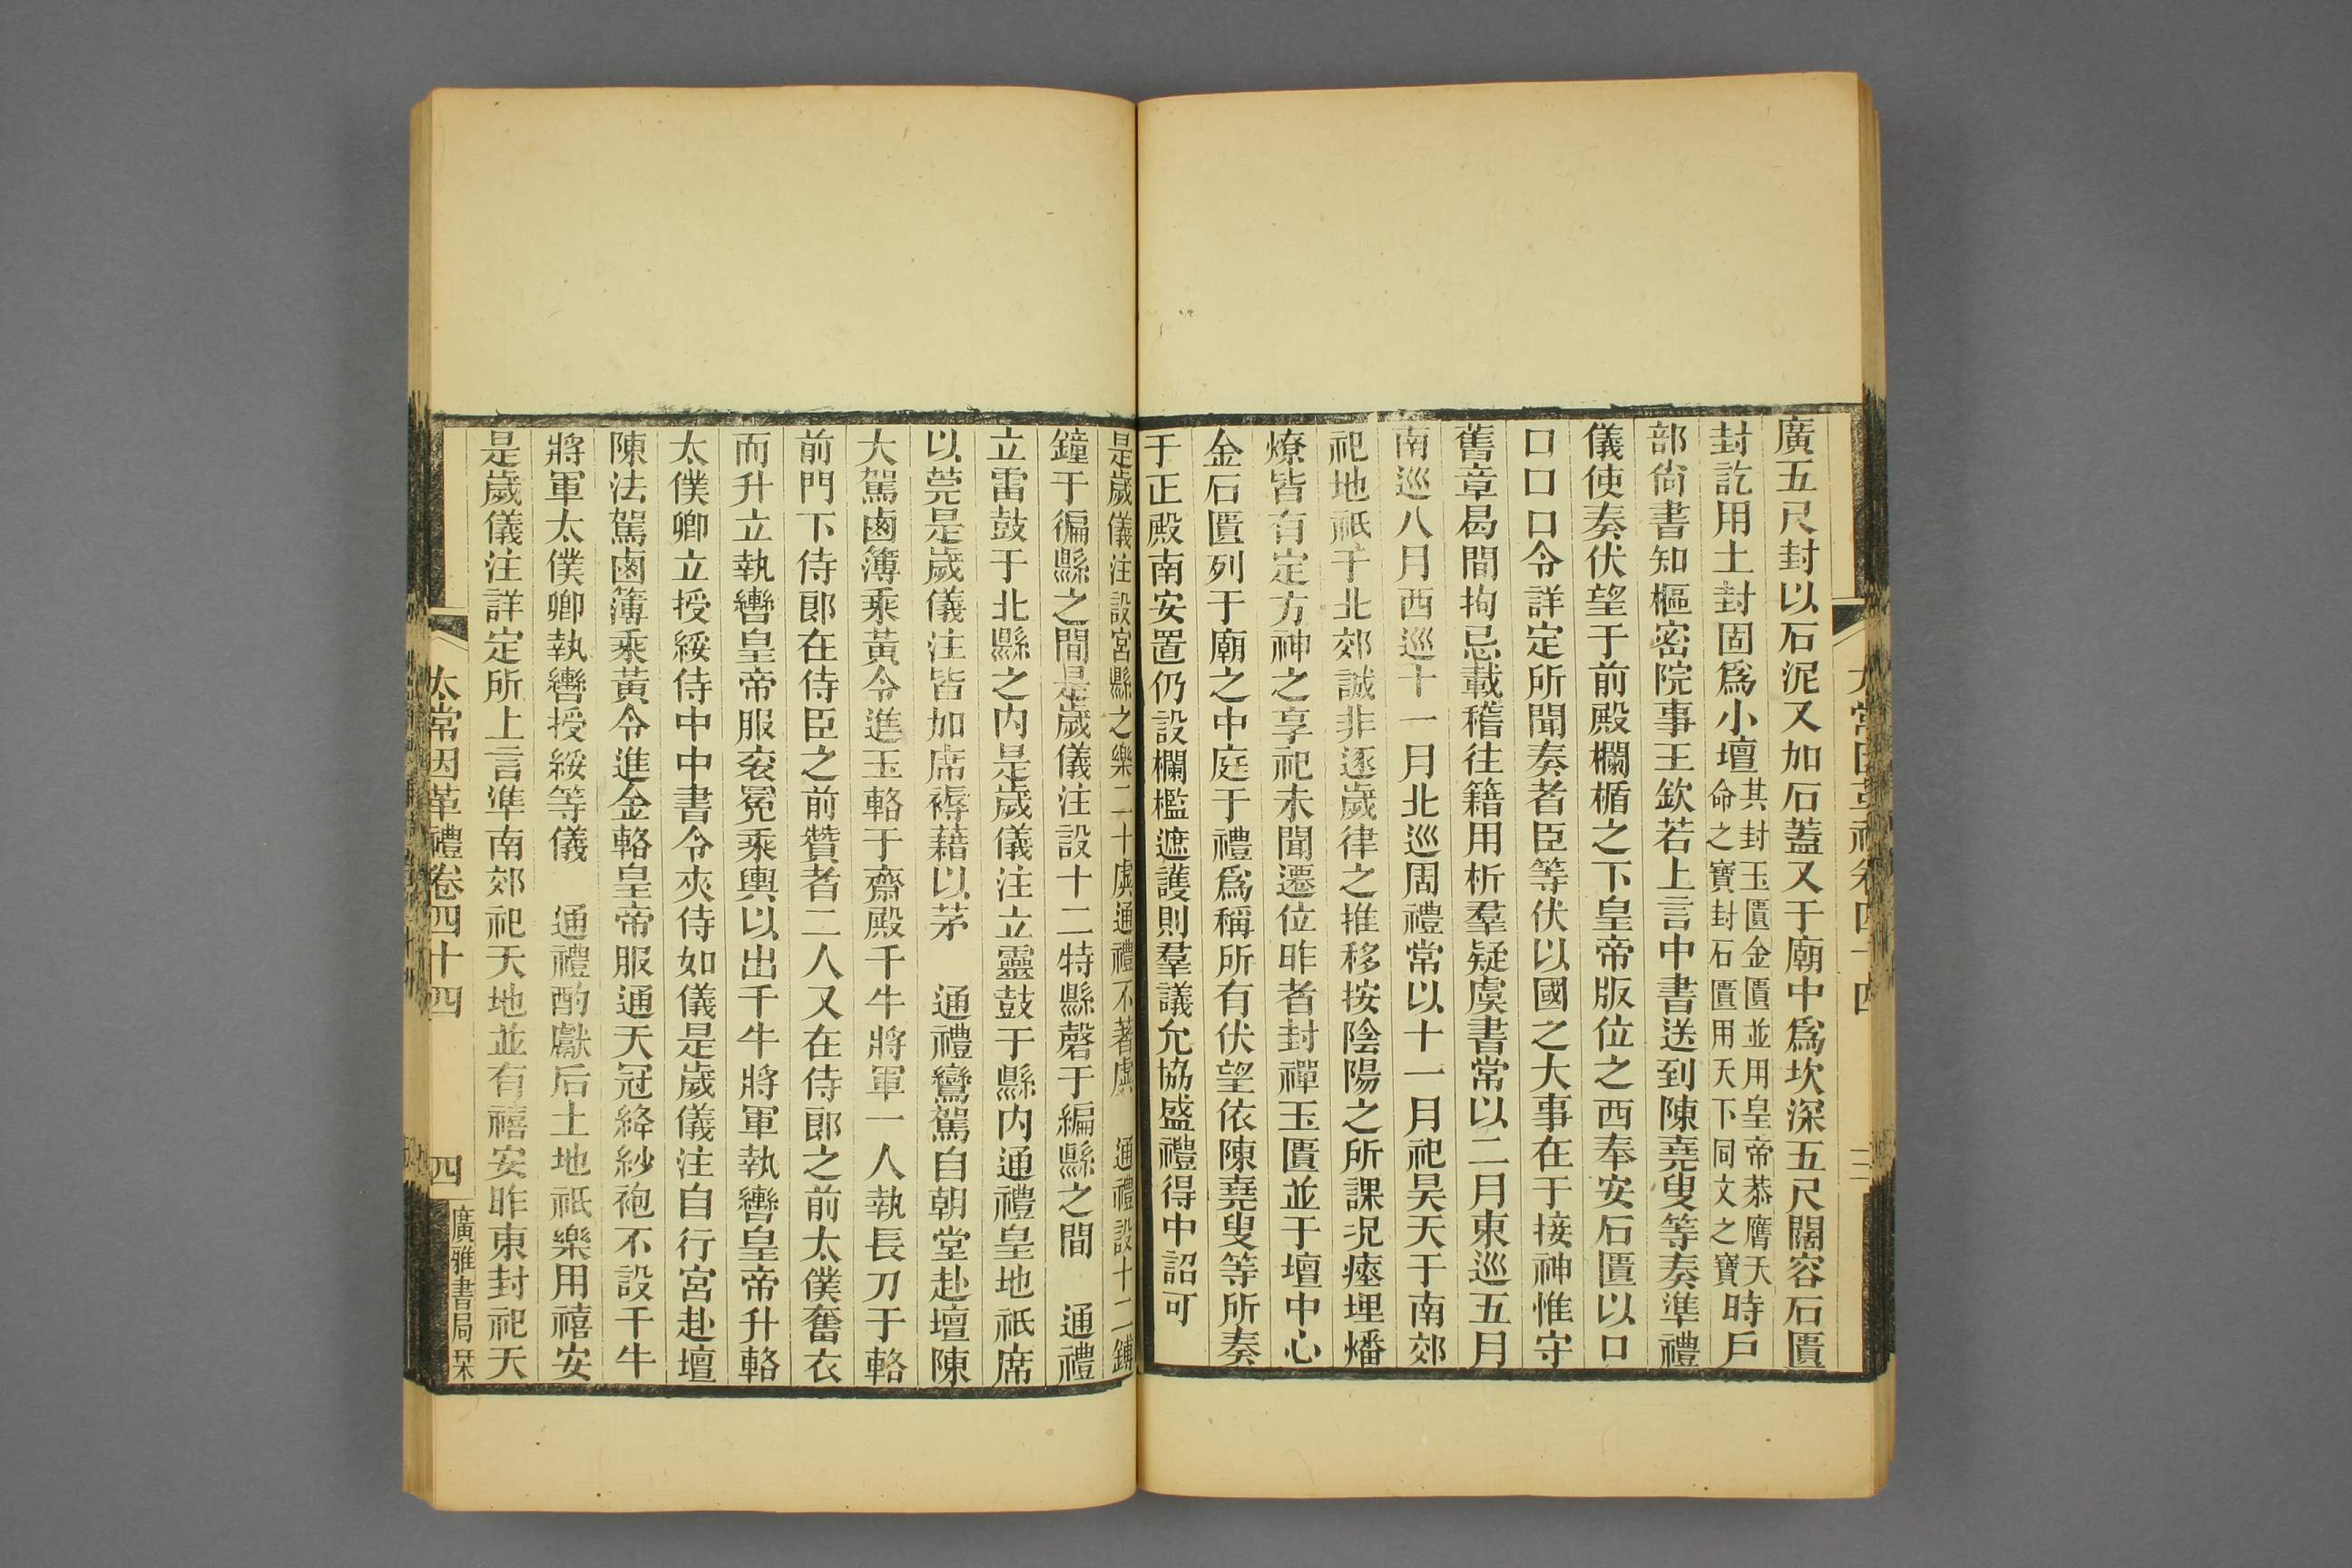 廣五尺封以石泥又加石蓋又于廟中爲坎深五尺闊容石匱
封訖用土封固爲小壇其封玉匱金匱並用皇帝恭膺天命之寶封石匱用天下同文之寶時戶
部尙書知樞密院事王欽若上言中書送到陳堯叟等奏準禮
儀使奏伏望于前殿欄楯之下皇帝版位之西奉安石匱以口
口口口令詳定所聞奏者臣等伏以國之大事在于接神惟守
舊章曷間拘忌載稽往籍用析羣疑虞書常以二月東巡五月
南巡八月西巡十一月北巡周禮常以十一月祀昊天于南郊
祀地祇于北郊誠非逐歲律之推移按陰陽之所課況瘞埋燔
燎皆有定方神之享祀未聞遷位昨者封禪玉匱並于壇中心
金石匱列于廟之中庭于禮爲稱所有伏望依陳堯叟等所奏
于正殿南安置仍設欄檻遮護則羣議允協盛禮得中詔可
是歲儀注設宮縣之樂二十虡通禮不著虡　通禮設十二鎛
鐘于徧縣之間是歲儀注設十二特縣磬于編縣之間　通禮
立雷鼓于北縣之内是歲儀注立靈鼓于縣内通禮皇地祇席
以莞是歲儀注皆加席褥藉以茅　通禮鸞駕自朝堂赴壇陳
大駕鹵簿乘黃令進玉輅于齋殿千牛將軍一人執長刀于輅
前門下侍郎在侍臣之前贊者二人又在侍郎之前太僕奮衣
而升立執轡皇帝服衮冕乘輿以出千牛將軍執轡皇帝升輅
太僕卿立授綏侍中中書令夾侍如儀是歲儀注自行宮赴壇
陳法駕鹵簿乘黃令進金輅皇帝服通天冠絳紗袍不設千牛
將軍太僕卿執轡授綏等儀　通禮酌獻后土地祇樂用禧安
是歲儀注詳定所上言準南郊祀天地並有禧安昨東封祀天
太常因革禮卷四十四
四
廣雅書局栞